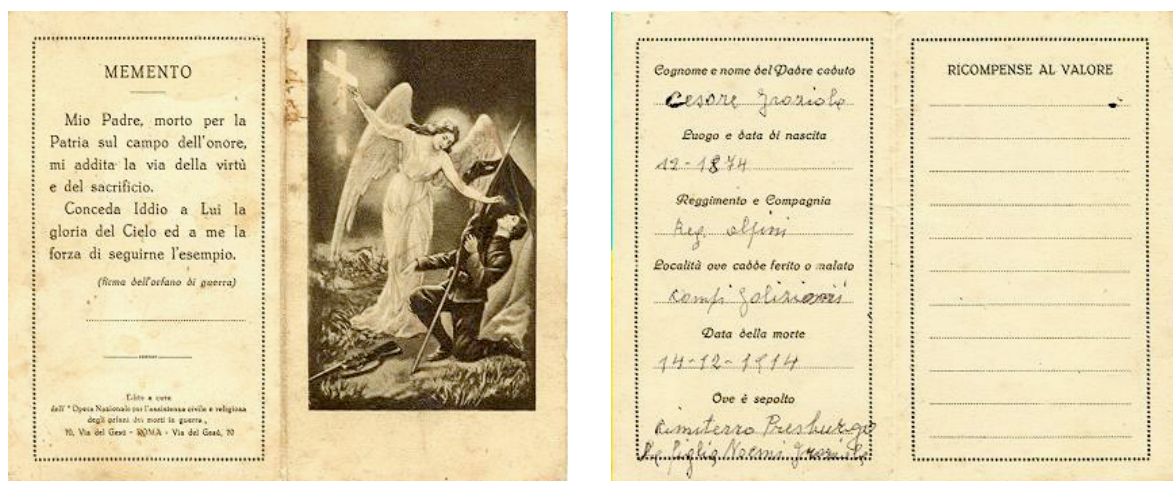 MEMENTO
Mio Padre, morto per la
Patria sul campo dell'onore,
mi addita la via della virtù
e del sacrificio.
Conceda Iddio a Lui la
gloria del Cielo ed a me la
forza di seguirne l'esempio.
(firma dell'orfano di guerra)
Edito a cura
dell'"Opera Nazionale per l'assistenza civile e religiosa
degli orfani dei morti in guerra,
70, Via del Gesù - ROMA - Via del Gesù, 70
Cognome e nome del Padre caduto
Cesare Graziola
Luogo e data di nascita
12-1874
Reggimento e Compagnia
Reg. alpini
Località ove cadde ferito o malato
campi Galiziani
Data della morte
14-12-1914
Ove è sepolto
Cimiterro Presburgo
figlia Noemi Graziola
RICOMPENSE AL VALORE